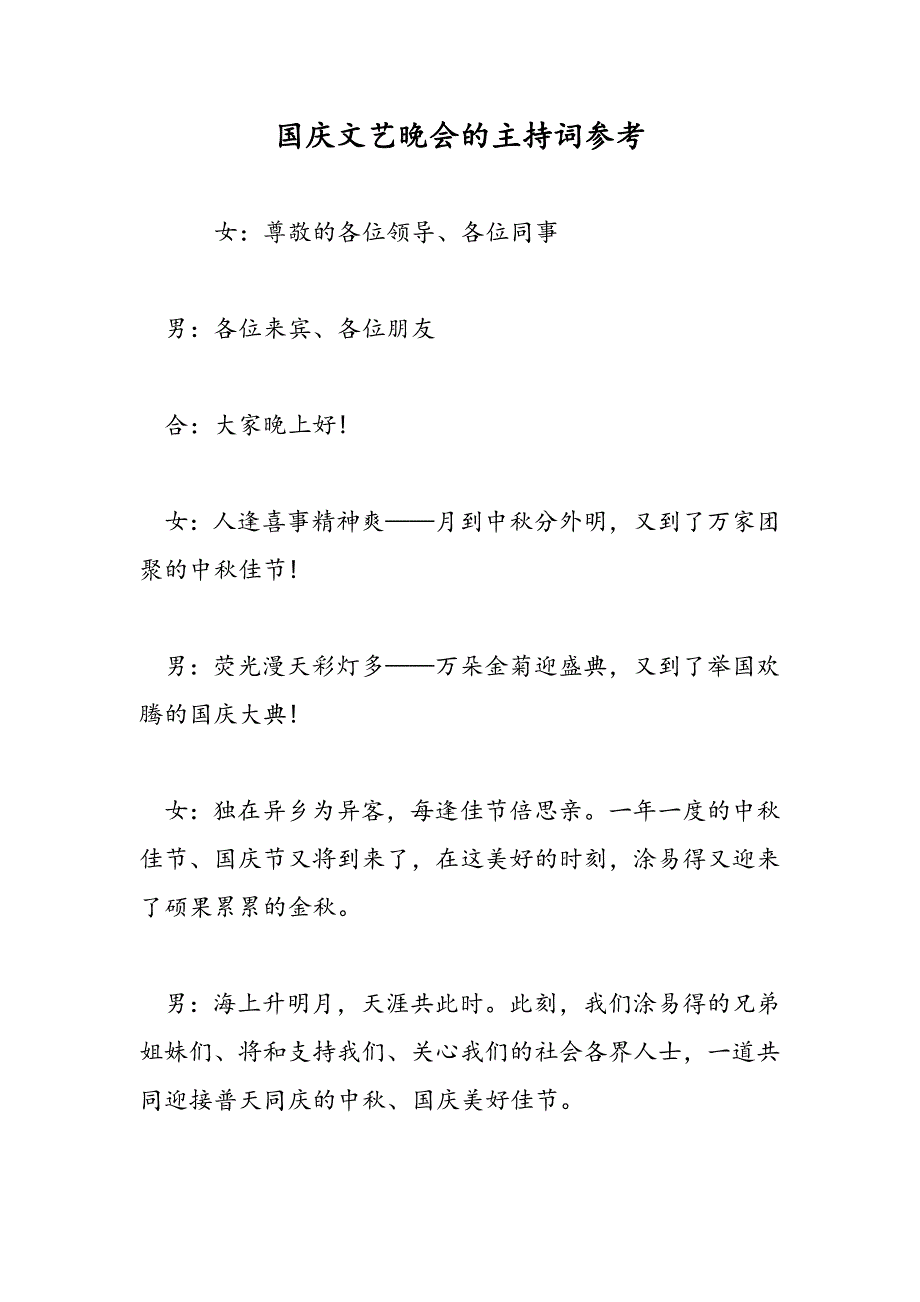 国庆文艺晚会的主持词参考
女：尊敬的各位领导、各位同事
男：各位来宾、各位朋友
合：大家晚上好！
女：人逢喜事精神爽——月到中秋分外明，又到了万家团
聚的中秋佳节！
男：荧光漫天彩灯多——万朵金菊迎盛典，又到了举国欢
腾的国庆大典！
女：独在异乡为异客，每逢佳节倍思亲。一年一度的中秋
佳节、国庆节又将到来了，在这美好的时刻，涂易得又迎来
了硕果累累的金秋。
男：海上升明月，天涯共此时。此刻，我们涂易得的兄弟
姐妹们、将和支持我们、关心我们的社会各界人士，一道共
同迎接普天同庆的中秋、国庆美好佳节。